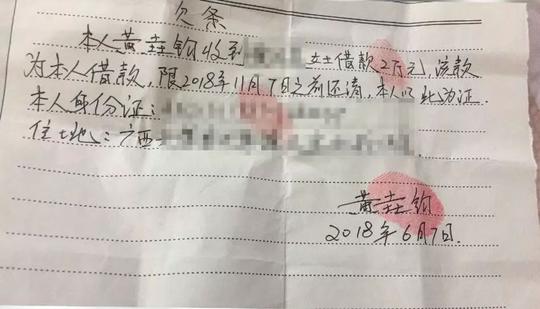 欠条
本人黄垚钧收到 女士借款2万元,该款
为本人借款,限2018年11月7日之前还清,本人以此为证.
本人身份证:
住土地:广西
黄垚钧
2018年6月7日.